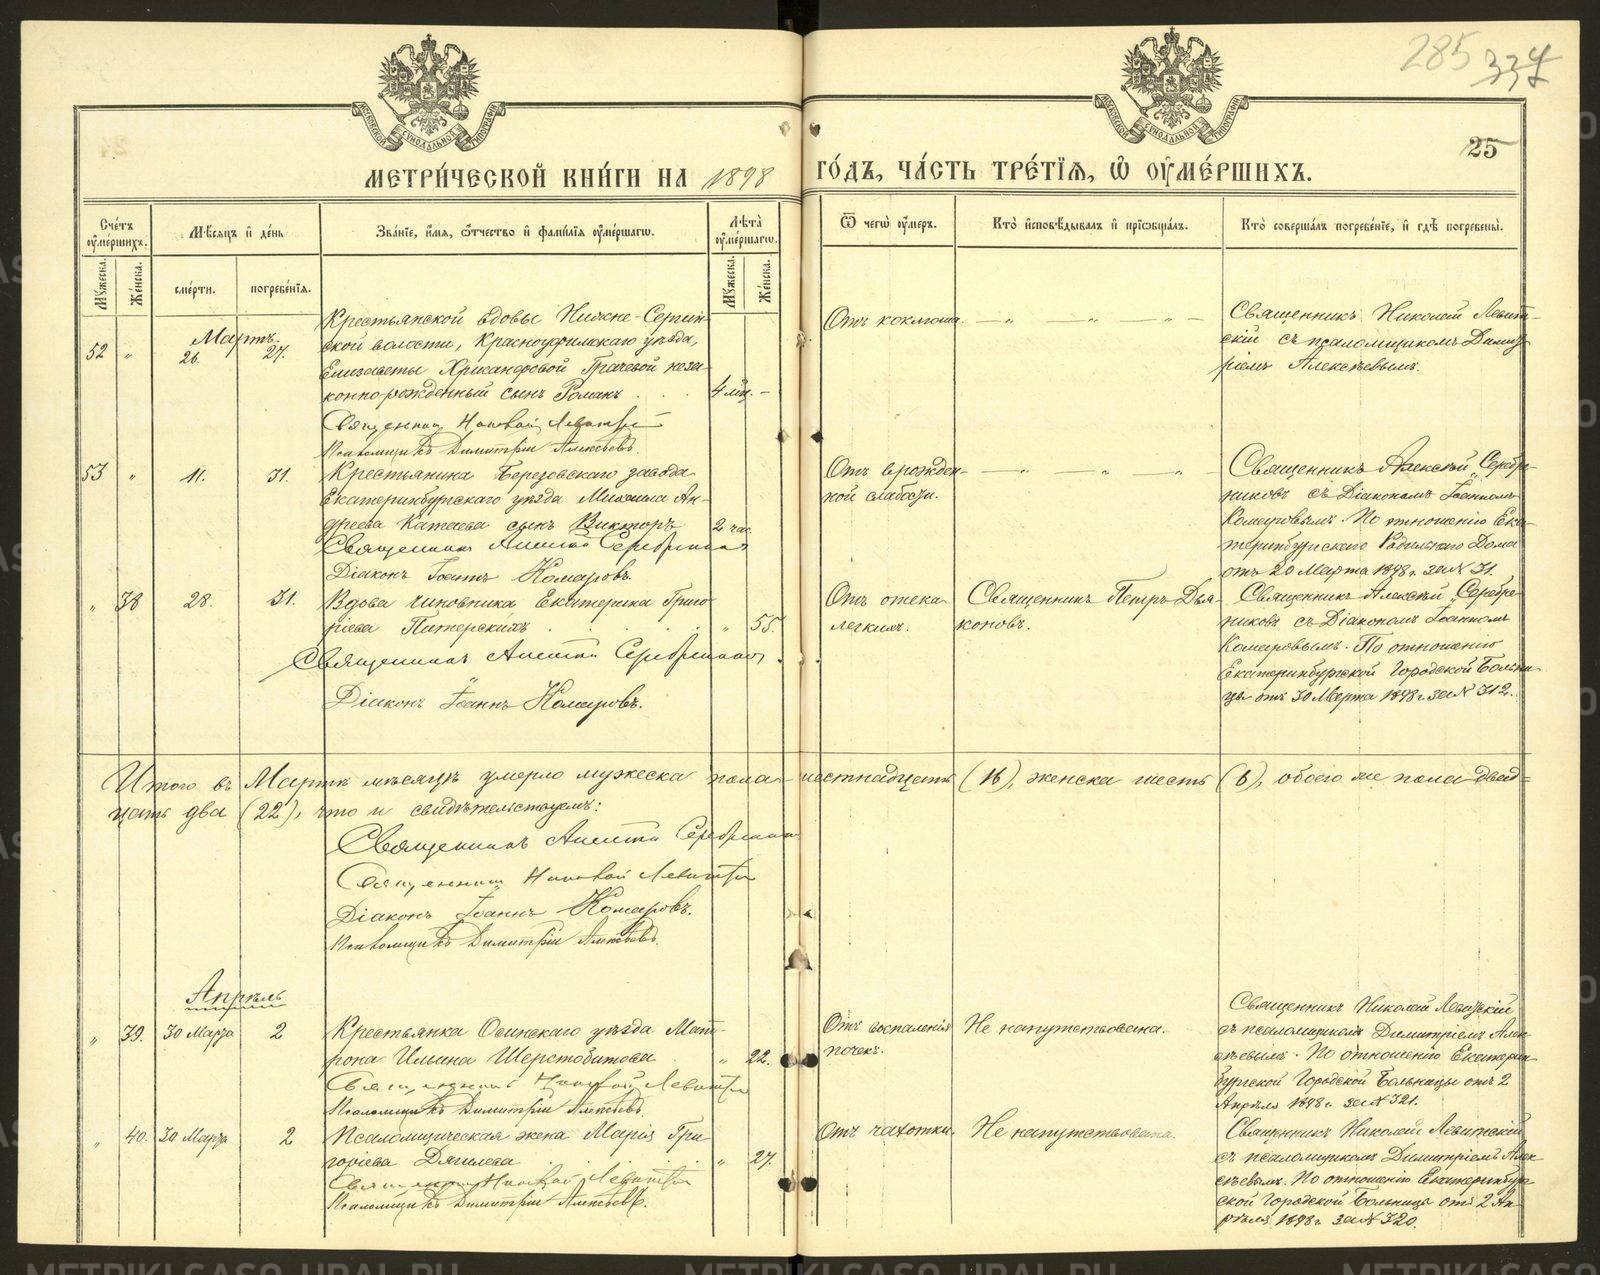 285 337
25
МОСКОВСКОЙ СѴНОДАЛЬНОЙ ТИПОГРАФІИ
МОСКОВСКОЙ СѴНОДАЛЬНОЙ ТИПОГРАФІИ
МЕТРИ́ЧЕСКОЙ КНИ́ГИ НА 1898 ГО́ДЪ, ЧА́СТЬ ТРЕ́ТІѦ, Ѽ ОУ҆МЕ́РШИХЪ.
Сче́тъ оу҆ме́ршихъ.
Мꙋ́жеска.
Же́нска.
Мѣ́сяцъ и҆ де́нь
сме́рти.
погребе́нїѧ.
Зва́нїе, и҆́мѧ, ѻ҆́тчество и҆ фами́лїѧ оу҆ме́ршагѡ.
Лѣ̀та̀ оу҆ме́ршагѡ.
Мꙋ́жеска.
Же́нска.
Ѿ чегѡ̀ оу҆́меръ.
Кто̀ и҆сповѣ́дывалъ и҆ прїѡбща́лъ.
Кто̀ соверша́лъ погребе́нїе, и҆ гдѣ̀ погребены̀.
Мартъ.
52 „ 26. 27.
Крестьянской вдовы Нижне-Сергин-
ской волости, Красноуфимскаго уѣзда,
Елизаветы Хрисанфовой Грачевой неза-
коннорожденный сынъ Романъ . . . 4 мѣс. –
Священникъ Николай Левитскій
Псаломщикъ Димитрій Алексѣевъ.
Отъ коклюша. — „ „ „ —
Священникъ Николай Левит-
скій съ псаломщикомъ Димит-
ріемъ Алексѣевымъ.
53 „ 11. 31.
Крестьянина Березовскаго завода
Екатеринбургскаго уѣзда Михаила Ан-
дреева Катаева сынъ Викторъ 2 час.
Священникъ Алексѣй Серебренниковъ
Діаконъ Іоаннъ Комаровъ.
Отъ врожден- — „ „ „ —
ной слабости.
Священникъ Алексѣй Серебре-
никовъ съ Діакономъ Іоанномъ
Комаровымъ. По отношенію Ека-
теринбургскаго Родильнаго Дома
отъ 20 Марта 1898 г. за № 31.
„ 38 28. 31.
Вдова чиновника Екатерина Григо-
ріева Питерскихъ . . . . „ 55.
Священникъ Алексѣй Серебренниковъ
Діаконъ Іоаннъ Комаровъ.
Отъ отека
легкихъ.
Священникъ Петръ Дья-
коновъ.
Священникъ Алексѣй Серебре-
никовъ съ Діакономъ Іоанномъ
Комаровымъ. По отношенію
Екатеринбургской Городской Больни-
цы отъ 30 Марта 1898 г. за № 312.
Итого въ Мартѣ мѣсяцѣ умерло мужеска пола шестнадцать (16), женска шесть (6), обоего же пола двад-
цать два (22), что и свидѣтельствуемъ:
Священникъ Алексѣй Серебренниковъ
Священникъ Николай Левитскій
Діаконъ Іоаннъ Комаровъ.
Псаломщикъ Димитрій Алексѣевъ.
Апрѣль
„ 39. 30 Марта 2
Крестьянка Осинскаго уѣзда Мат-
рона Ильина Шерстобитова . „ 22.
Священникъ Николай Левитскій
Псаломщикъ Димитрій Алексѣевъ.
Отъ воспаленія
почекъ.
Не напутствована.
Священникъ Николай Левитскій
съ псаломщикомъ Димитріемъ Алек-
сѣевымъ. По отношенію Екатерин-
бургской Городской Больницы отъ 2
Апрѣля 1898 г. за № 321.
„ 40. 30 Марта 2
Псаломщическая жена Марія Гри-
горіева Дягилева . . . . „ 27.
Священникъ Николай Левитскій
Псаломщикъ Димитрій Алексѣевъ.
Отъ чахотки.
Не напутствована.
Священникъ Николай Левитскій
съ псаломщикомъ Димитріемъ Алек-
сѣевымъ. По отношенію Екатеринбург-
ской Городской Больницы отъ 2 Ап-
рѣля 1898 г. за № 320.
METRIKI.CASO-URAL.RU